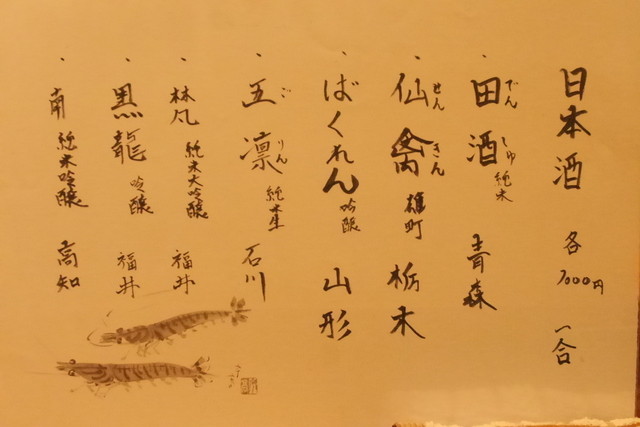 日本酒 各 1000円 一合
・田酒 でんしゅ 純米 青森
・仙禽 せんきん 雄町 栃木
・ばくれん 吟醸 山形
・五凛 ごりん 純米生 石川
・梵 純米大吟醸 福井
・黒龍 吟醸 福井
・南 純米吟醸 高知